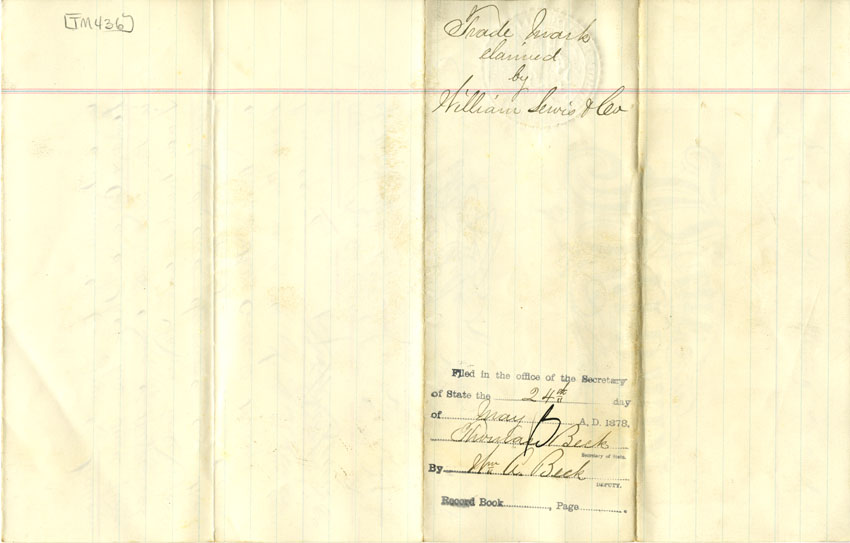 [TM436]
Trade Mark
claimed
by
William Lewis & Co
Filed in the office of the Secretary
of State the 24th day
of May A. D. 1878.
Thomas Beck
Secretary of State.
By Wm A. Beck
DEPUTY.
Record Book, Page